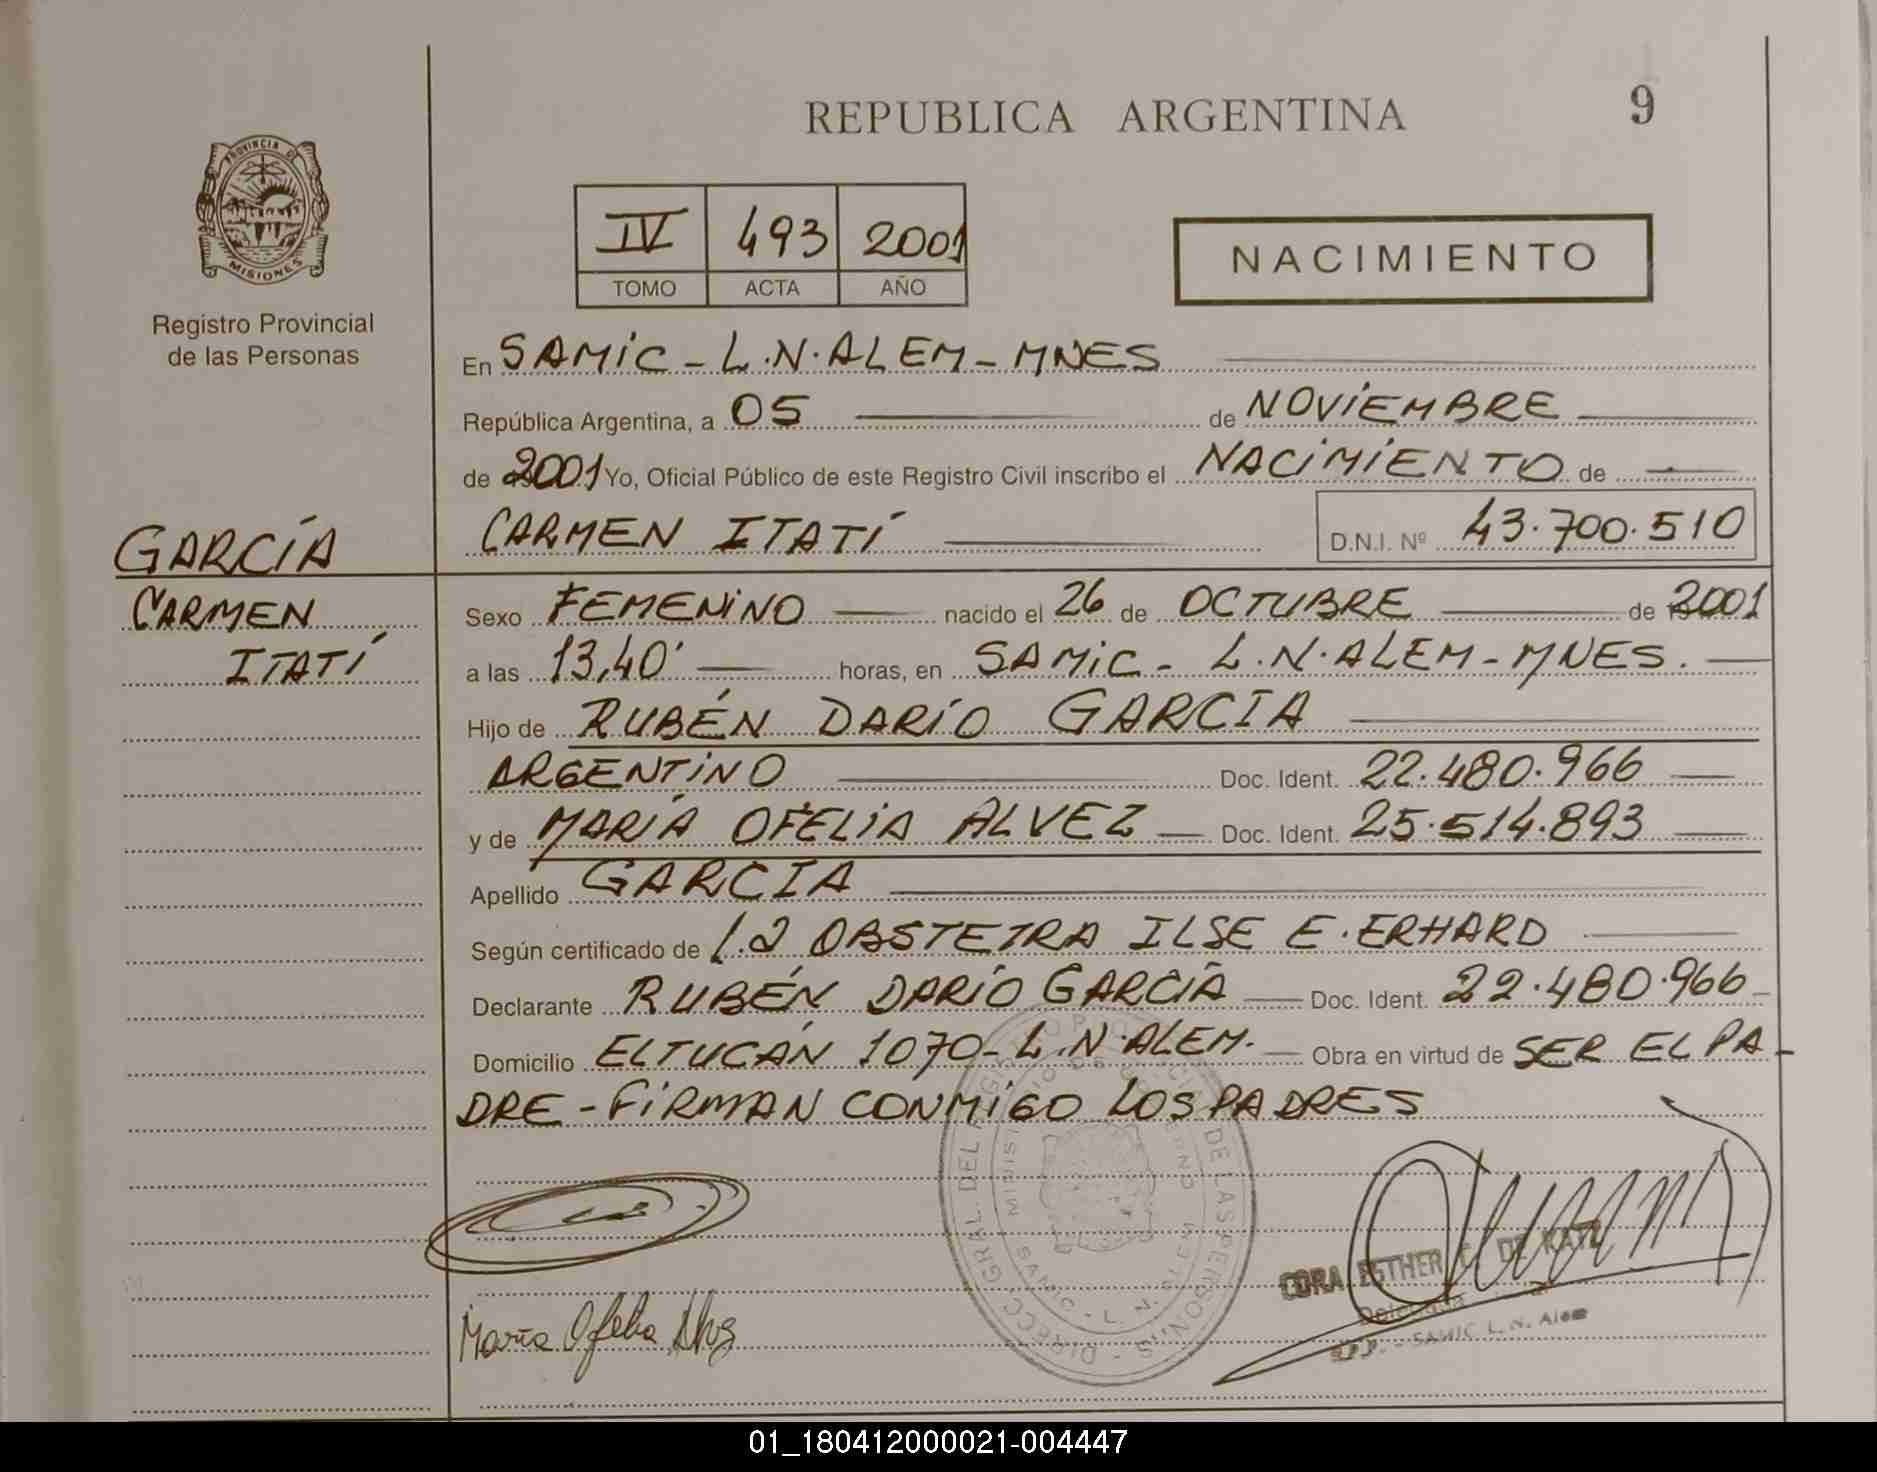 REPUBLICA ARGENTINA 9
PROVINCIA DE
MISIONES
Registro Provincial
de las Personas
IV 493 2001
TOMO ACTA AÑO
NACIMIENTO
En SAMIC - L.N. ALEM - MNES
República Argentina, a 05 de NOVIEMBRE
de 2001 Yo, Oficial Público de este Registro Civil inscribo el NACIMIENTO de
GARCÍA CARMEN ITATÍ D.N.I. Nº 43.700.510
CARMEN Sexo FEMENINO nacido el 26 de OCTUBRE de 2001
ITATÍ a las 13,40' horas, en SAMIC - L.N. ALEM - MNES.
Hijo de RUBÉN DARÍO GARCIA
ARGENTINO Doc. Ident. 22.480.966
y de MARÍA OFELIA ALVEZ Doc. Ident. 25.514.893
Apellido GARCIA
Según certificado de OBSTETRA ILSE E. ERHARD
Declarante RUBÉN DARÍO GARCÍA Doc. Ident. 22.480.966
Domicilio EL TUCÁN 1070 - L.N. ALEM. Obra en virtud de SER EL PA-
DRE - FIRMAN CONMIGO LOS PADRES
CORA ESTHER C. DE KATZ
Delegada
SAMIC L. N. Alem
María Ofelia Alvez
01_180412000021-004447